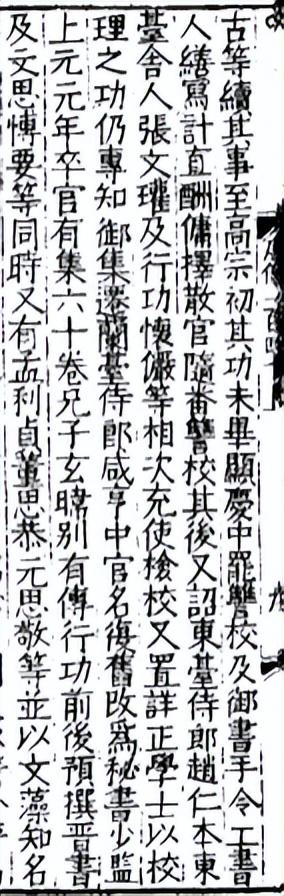 古等續其事至高宗初其功未畢顯慶中罷讐校及御書手令工書
人繕寫計直酬傭擇散官隨番讐校其後又詔東臺侍郎趙仁本東
臺舍人張文瓘及行功懷儼等相次充使檢校又置詳正學士以校
理之功仍專知御集遷蘭臺侍郎咸亨中官名復舊改爲秘書少監
上元元年卒官有集六十卷兄子玄暐别有傳行功前後預撰晋書
及文思愽要等同時又有孟利貞董思恭元思敬等並以文藻知名